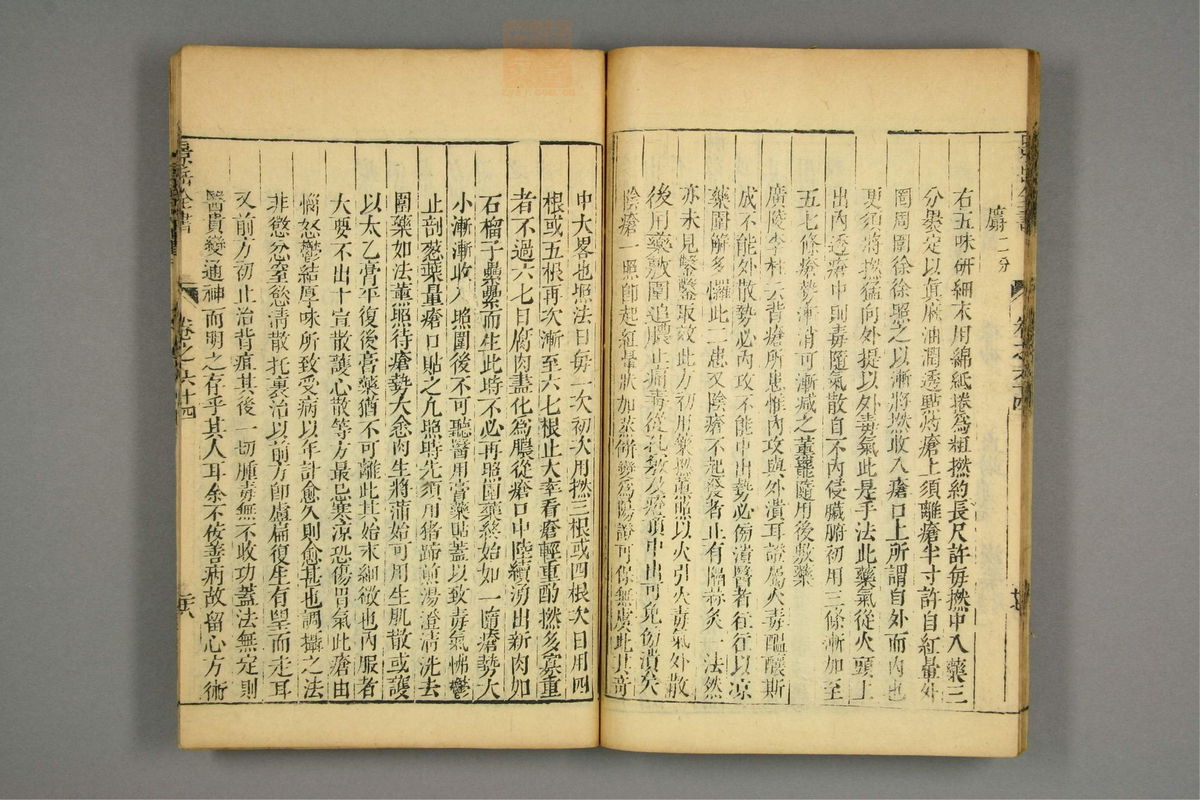 麝二分
右五味研細末用綿紙捲為粗撚約長尺許每撚中入藥三
分褁定以真麻油潤透㸃灼瘡上須離瘡半寸許自紅暈外
圈周圍徐徐照之以漸將撚收入瘡口上所謂自外而內也
更須將撚猛向外提以外毒氣此是手法此藥氣從火頭上
出內透瘡中則毒隨氣散自不內侵臟腑初用三條漸加至
五七條瘡勢漸消可漸減之薰罷隨用後敷藥
廣陵李杜云背瘡所患惟內攻與外潰耳證屬火毒醞釀斯
成不能外散勢必內攻不能中出勢必傍潰醫者往往以凉
藥圍解多罹此二患又陰瘡不起發者止有隔蒜灸一法然
亦未見鑿鑿取效此方初用藥撚薰照以火引火毒氣外散
後用藥敷圍追膿止痛毒從孔竅及瘡頂中出可免傍潰矣
陰瘡一照卽起紅暈狀如蒸餅變為陽證可保無虞此其竒
中大畧也照法日每一次初次用撚三根或四根次日用四
根或五根再次漸至六七根止大率看瘡輕重酌撚多寡重
者不過六七日腐肉盡化為膿從瘡口中陸續湧出新肉如
石榴子纍纍而生此時不必再照圍藥終始如一隨瘡勢大
小漸漸收入照圍後不可聽醫用膏藥貼蓋以致毒氣怫鬱
止剖葱葉量瘡口貼之凢照時先須用猪蹄煎湯澄清洗去
圍藥如法薰照待瘡勢大愈肉生將滿始可用生肌散或護
以太乙膏平復後膏藥猶不可離此其始末細微也內服者
大要不出十宣散護心散等方最忌寒涼恐傷胃氣此瘡由
惱怒鬱結厚味所致受病以年計愈久則愈甚也調攝之法
非懲忿窒慾清散托裏治以前方卽盧扁復生有朢而走耳
又前方初止治背疽其後一切腫毒無不收功蓋法無定則
醫貴變通神而明之存乎其人耳余不佞善病故留心方術
景岳全書
卷之六十四